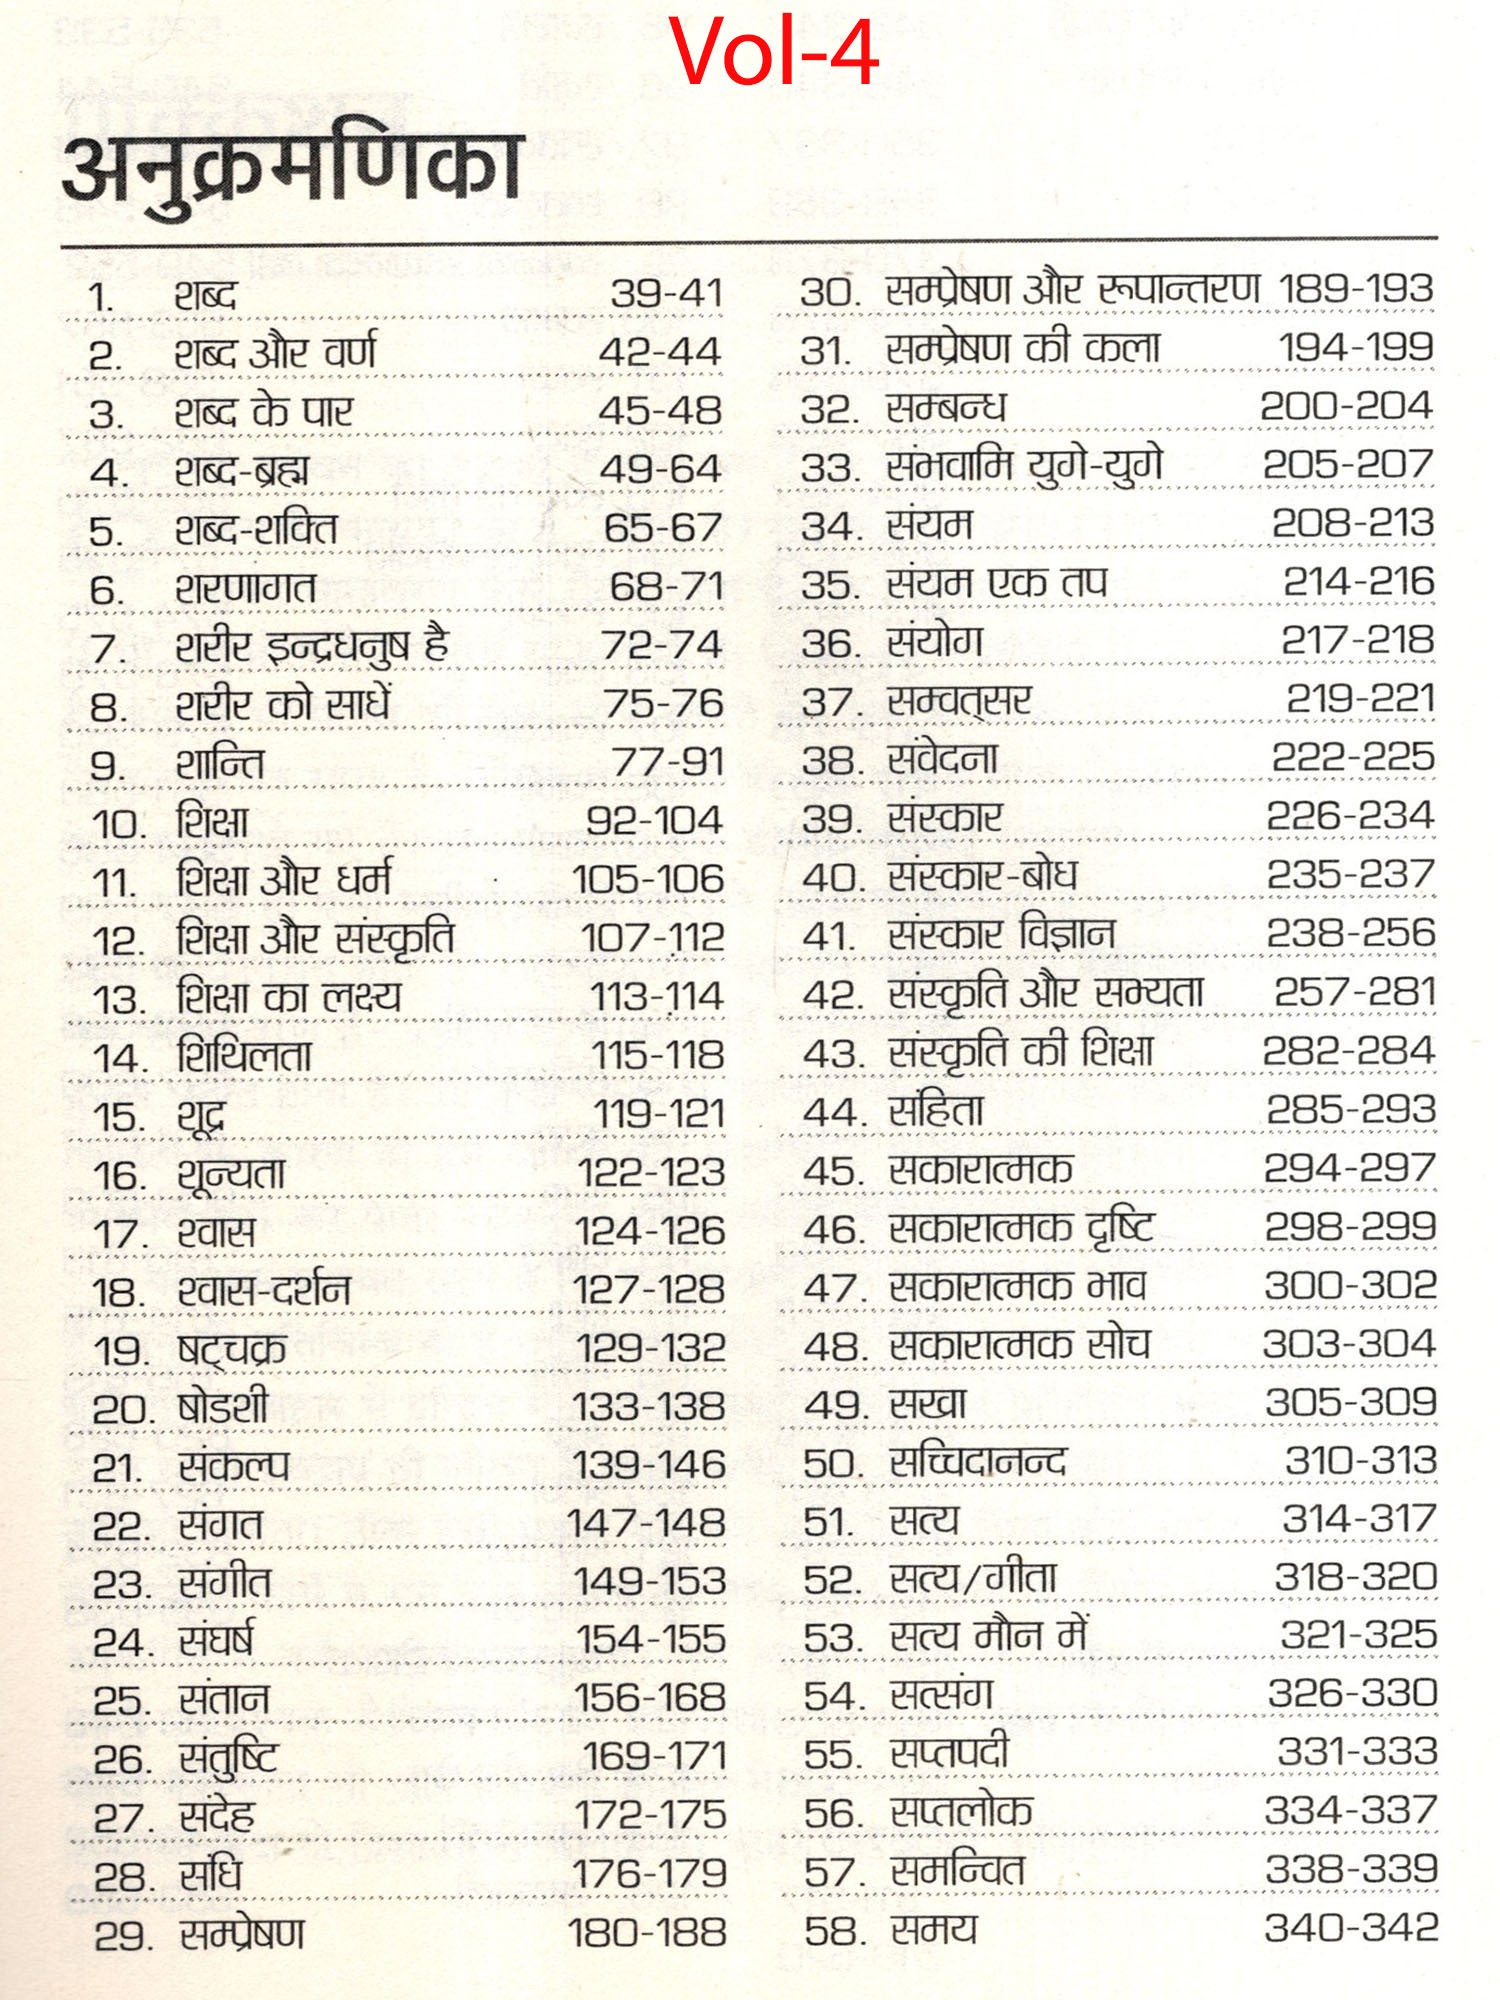 Vol-4
अनुक्रमणिका
1. शब्द 39-41
2. शब्द और वर्ण 42-44
3. शब्द के पार 45-48
4. शब्द-ब्रह्म 49-64
5. शब्द-शक्ति 65-67
6. शरणागत 68-71
7. शरीर इन्द्रधनुष है 72-74
8. शरीर को साधें 75-76
9. शान्ति 77-91
10. शिक्षा 92-104
11. शिक्षा और धर्म 105-106
12. शिक्षा और संस्कृति 107-112
13. शिक्षा का लक्ष्य 113-114
14. शिथिलता 115-118
15. शूद्र 119-121
16. शून्यता 122-123
17. श्वास 124-126
18. श्वास-दर्शन 127-128
19. षट्चक्र 129-132
20. षोडशी 133-138
21. संकल्प 139-146
22. संगत 147-148
23. संगीत 149-153
24. संघर्ष 154-155
25. संतान 156-168
26. संतुष्टि 169-171
27. संदेह 172-175
28. संधि 176-179
29. सम्प्रेषण 180-188
30. सम्प्रेषण और रूपान्तरण 189-193
31. सम्प्रेषण की कला 194-199
32. सम्बन्ध 200-204
33. संभवामि युगे-युगे 205-207
34. संयम 208-213
35. संयम एक तप 214-216
36. संयोग 217-218
37. सम्वत्सर 219-221
38. संवेदना 222-225
39. संस्कार 226-234
40. संस्कार-बोध 235-237
41. संस्कार विज्ञान 238-256
42. संस्कृति और सभ्यता 257-281
43. संस्कृति की शिक्षा 282-284
44. संहिता 285-293
45. सकारात्मक 294-297
46. सकारात्मक दृष्टि 298-299
47. सकारात्मक भाव 300-302
48. सकारात्मक सोच 303-304
49. सखा 305-309
50. सच्चिदानन्द 310-313
51. सत्य 314-317
52. सत्य/गीता 318-320
53. सत्य मौन में 321-325
54. सत्संग 326-330
55. सप्तपदी 331-333
56. सप्तलोक 334-337
57. समन्वित 338-339
58. समय 340-342